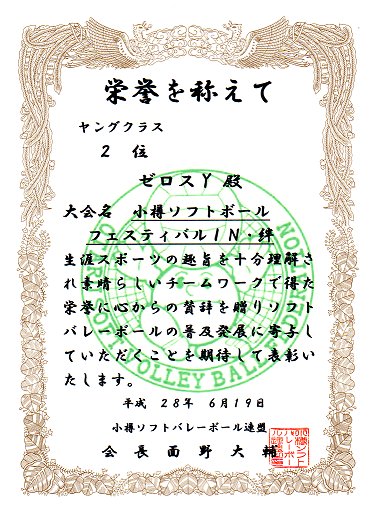 栄誉を称えて
ヤングクラス
２ 位
ゼロスＹ 殿
大会名 小樽ソフトボール
フェスティバルＩＮ・絆
生涯スポーツの趣旨を十分理解さ
れ素晴らしいチームワークで得た
栄誉に心からの賛辞を贈りソフト
バレーボールの普及発展に寄与し
ていただくことを期待して表彰い
たします。
平成 ２８年 ６月１９日
小樽ソフトバレーボール連盟
会 長 面 野 大 輔